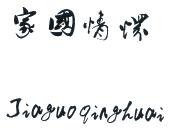 家國情懷
Jiaguoqinghuai